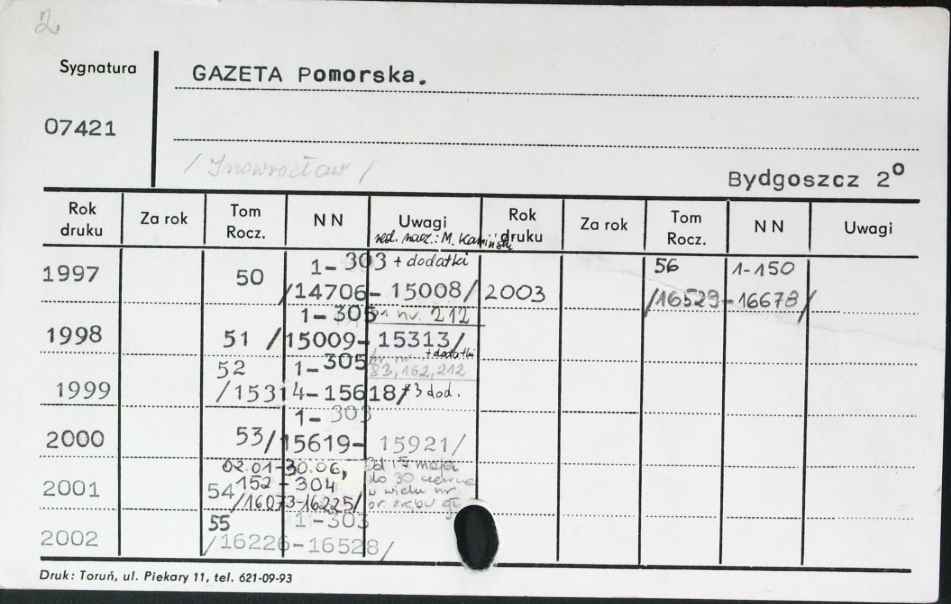 2
Sygnatura
GAZETA Pomorska.
07421
/Inowrocław/
Bydgoszcz 2°
Rok druku Za rok Tom Rocz. NN Uwagi Rok druku Za rok Tom Rocz. NN Uwagi
red. nacz.: M. Kamiński
1997 50 1-303 + dodatki 2003 56 1-150
/14706-15008/ /16529-16678/
1-305 nr. 212
1998 51 /15009-15313/
52 1-305 + dodatki
83,162,212
1999 /15314-15618/ +3 dod.
1-303
2000 53/15619-15921/
02.01-30.06, od maja
2001 54 152-304 do 30 czerwca
/16073-16225/ w wielu nr
55 1-303
2002 /16226-16528/
Druk: Toruń, ul. Piekary 11, tel. 621-09-93